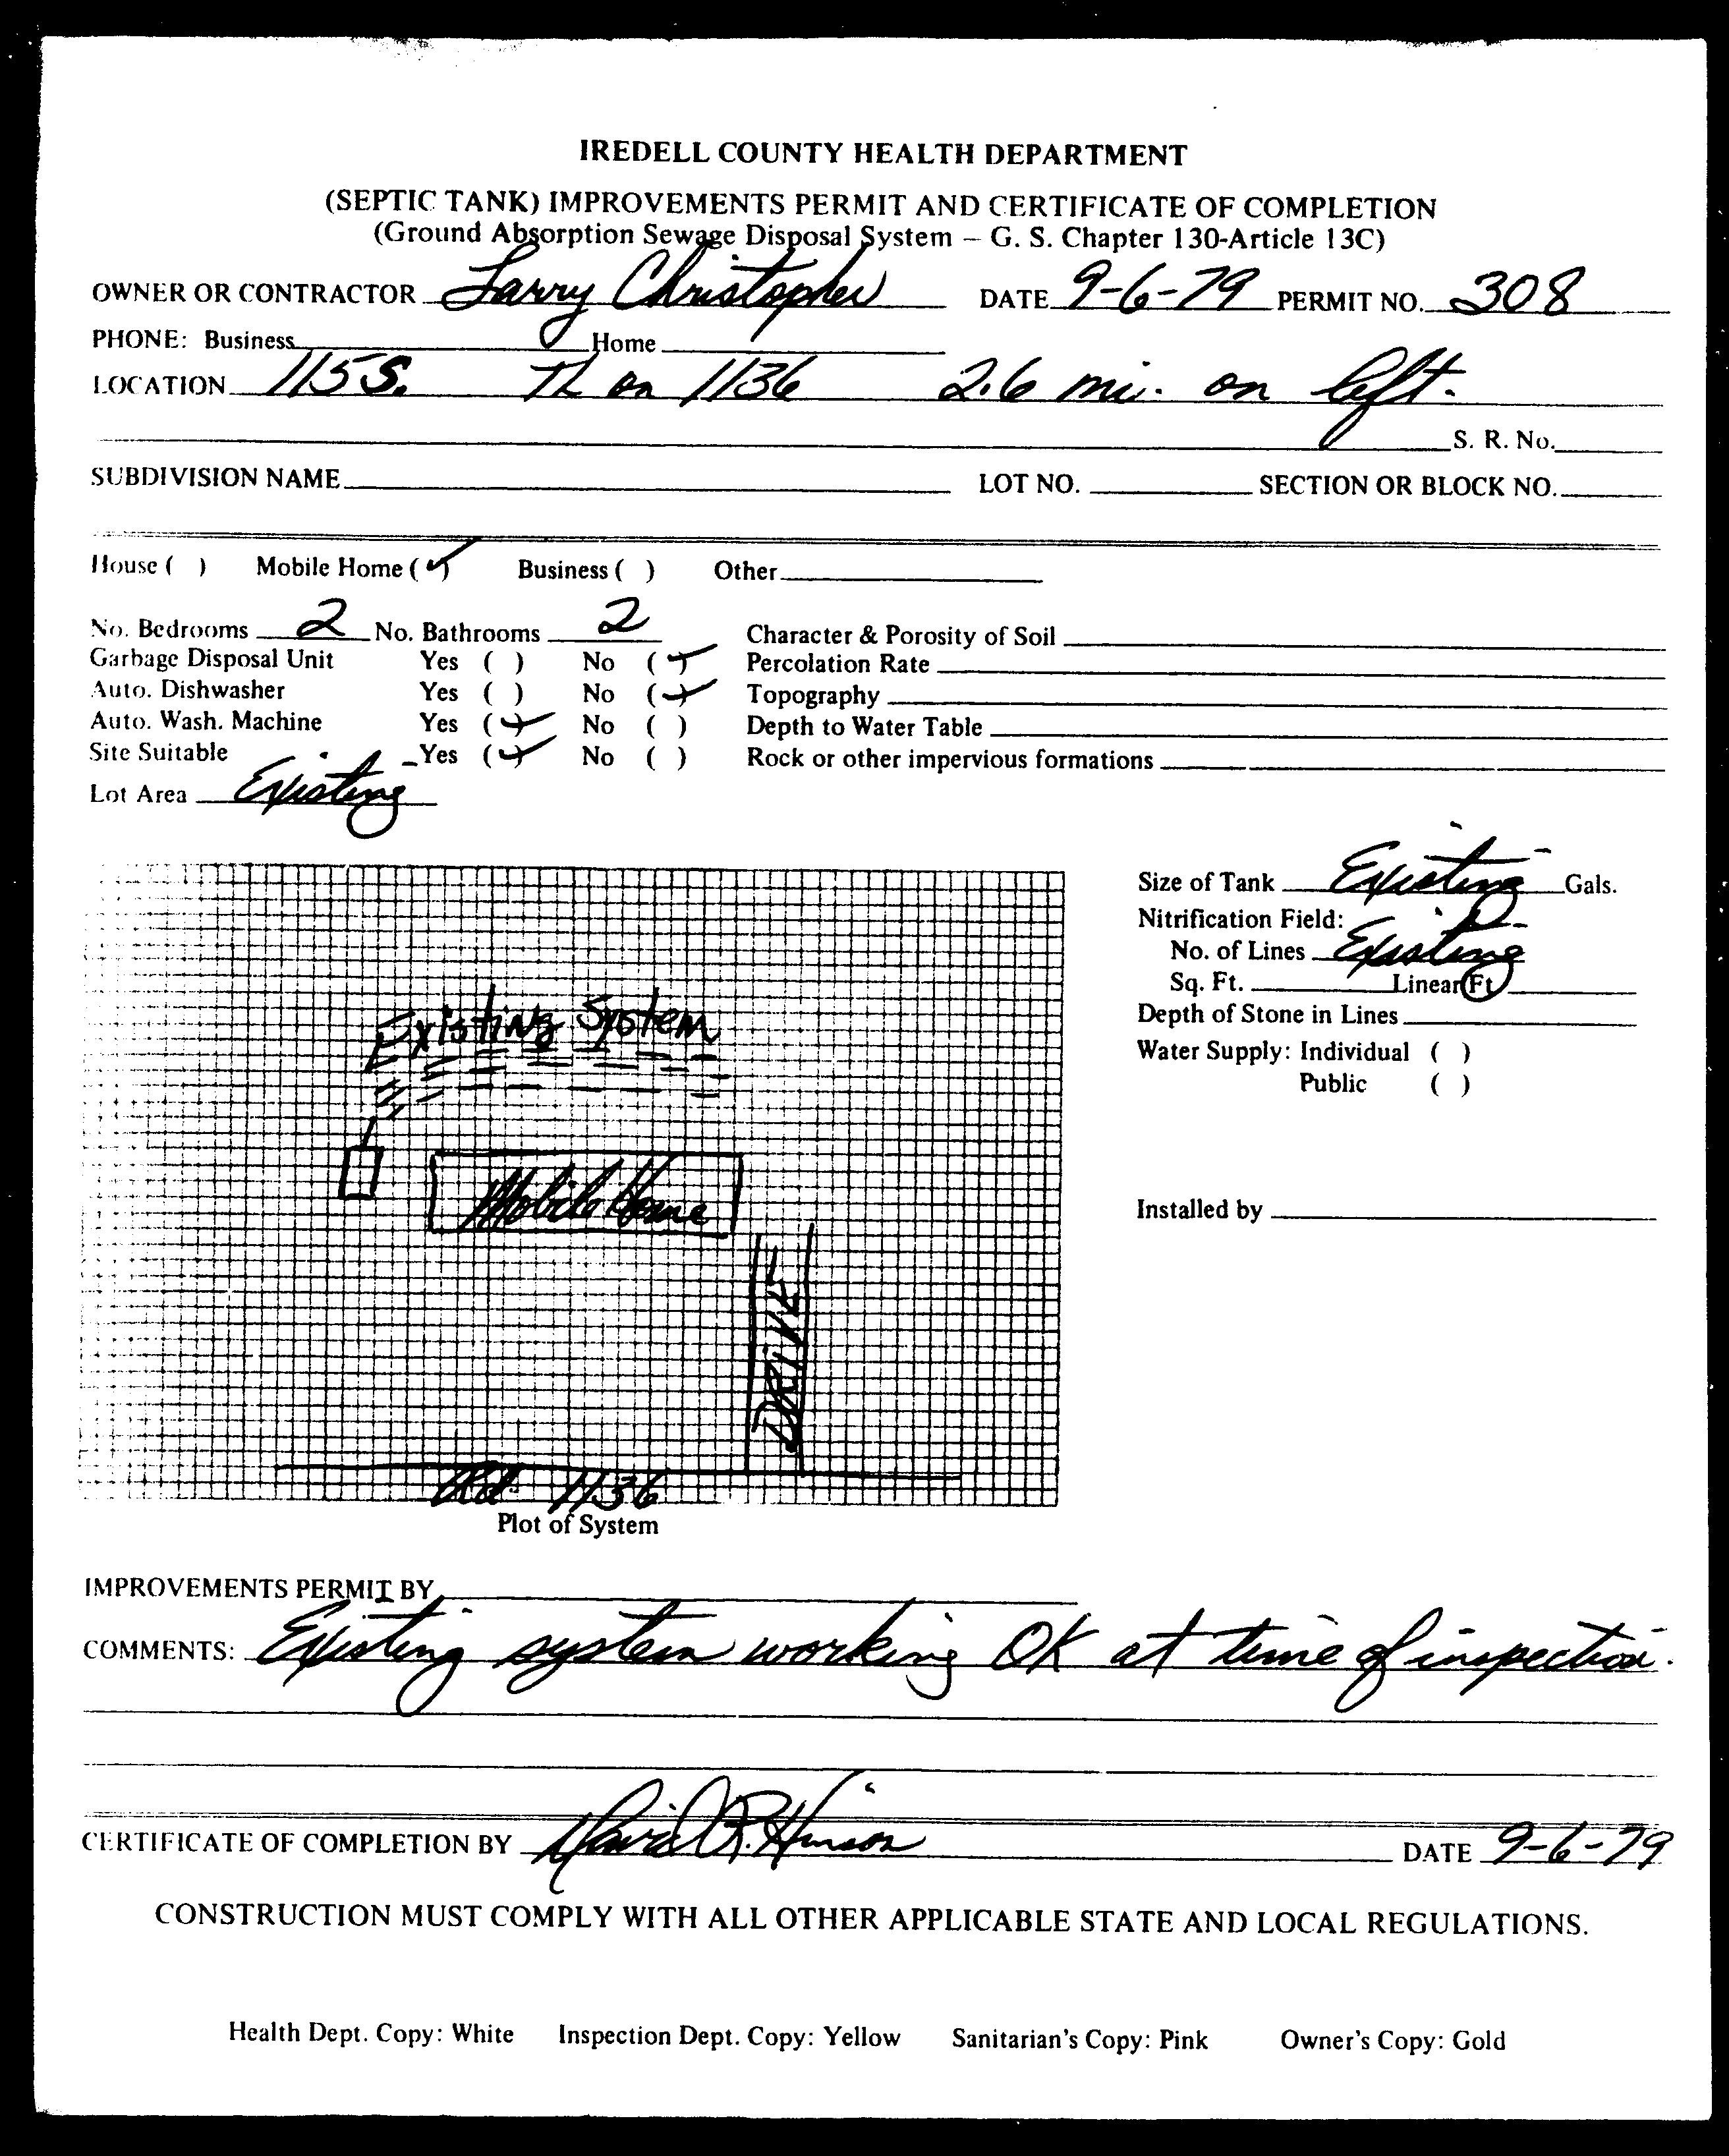 IREDELL COUNTY HEALTH DEPARTMENT
(SEPTIC TANK) IMPROVEMENTS PERMIT AND CERTIFICATE OF COMPLETION
(Ground Absorption Sewage Disposal System – G. S. Chapter 130-Article 13C)
OWNER OR CONTRACTOR Larry Christopher DATE 9-6-79 PERMIT NO. 308
PHONE: Business Home
LOCATION 115 S. TL on 1136 2.6 mi. on left.
S. R. No.
SUBDIVISION NAME LOT NO. SECTION OR BLOCK NO.
House ( ) Mobile Home (✓) Business ( ) Other
No. Bedrooms 2 No. Bathrooms 2 Character & Porosity of Soil
Garbage Disposal Unit Yes ( ) No (✓) Percolation Rate
Auto. Dishwasher Yes ( ) No (✓) Topography
Auto. Wash. Machine Yes (✓) No ( ) Depth to Water Table
Site Suitable Yes (✓) No ( ) Rock or other impervious formations
Lot Area Existing
Size of Tank Existing Gals.
Nitrification Field:
No. of Lines Existing
Sq. Ft. Linear Ft.
Depth of Stone in Lines
Water Supply: Individual ( )
Public ( )
Installed by
Existing System
Mobile Home
DRIVE
Rd 1136
Plot of System
IMPROVEMENTS PERMIT BY
COMMENTS: Existing system working OK at time of inspection.
CERTIFICATE OF COMPLETION BY David R. Hinson DATE 9-6-79
CONSTRUCTION MUST COMPLY WITH ALL OTHER APPLICABLE STATE AND LOCAL REGULATIONS.
Health Dept. Copy: White Inspection Dept. Copy: Yellow Sanitarian's Copy: Pink Owner's Copy: Gold